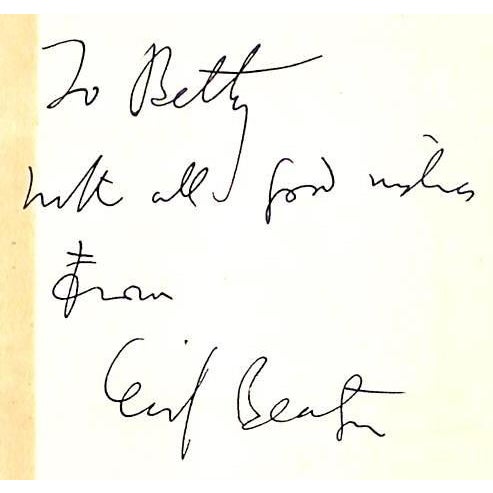 To Betty
with all good wishes
from
Cecil Beaton